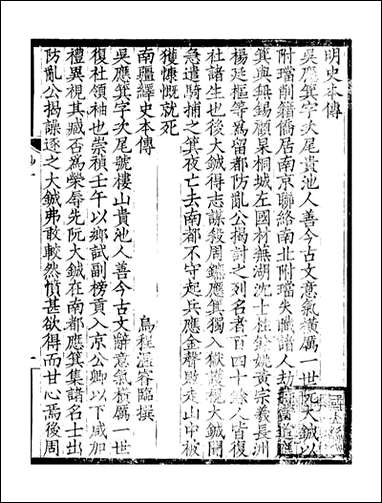 明史本傳
吳應箕字次尾貴池人善今古文意氣橫厲一世阮大鋮以
附璫削籍僑居南京聯絡南北附璫失職諸人劫
箕與無錫顧杲桐城左國材蕪湖沈士柱餘姚黃宗羲長洲
楊廷樞等爲留都防亂公揭討之列名者百四十餘人皆復
社諸生也後大鋮得志謀殺周鑣應箕獨入獄護視大鋮聞
急遣騎捕之箕夜亡去南都不守起兵應金聲敗走山中被
獲慷慨就死
南疆繹史本傳
烏程溫睿臨撰
吳應箕字次尾號樓山貴池人善今古文辭意氣橫厲一世
復社領袖也崇禎壬午以鄉試副榜貢入京公卿以下咸加
禮異視其臧否為榮辱先阮大鋮在南都應箕集諸名士出
防亂公揭譟逐之大鋮弗敢較然憤甚欲得而甘心焉後周